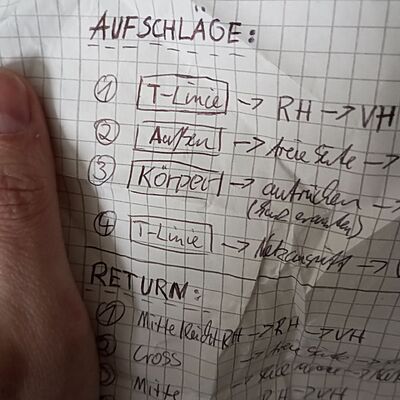 AUFSCHLÄGE:
① T-Linie → RH → VH
② Außen → freie Seite →
③ Körper → aufrücken →
④ T-Linie → Netzangriff →
RETURN:
① Mitte RH → RH → VH
② Cross → freie Seite →
③ Mitte RH → VH